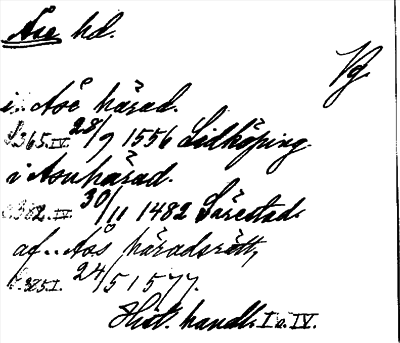 Åse hd.
Vg.
i Åse härad.
S.365.IV. 28/9 1556 Lidköping.
i Asuhärad.
S.382.IV. 30/11 1482 Särestad.
af Åse häradsrätt,
S.385.I. 24/5 1577.
Hist. handl. I o. IV.